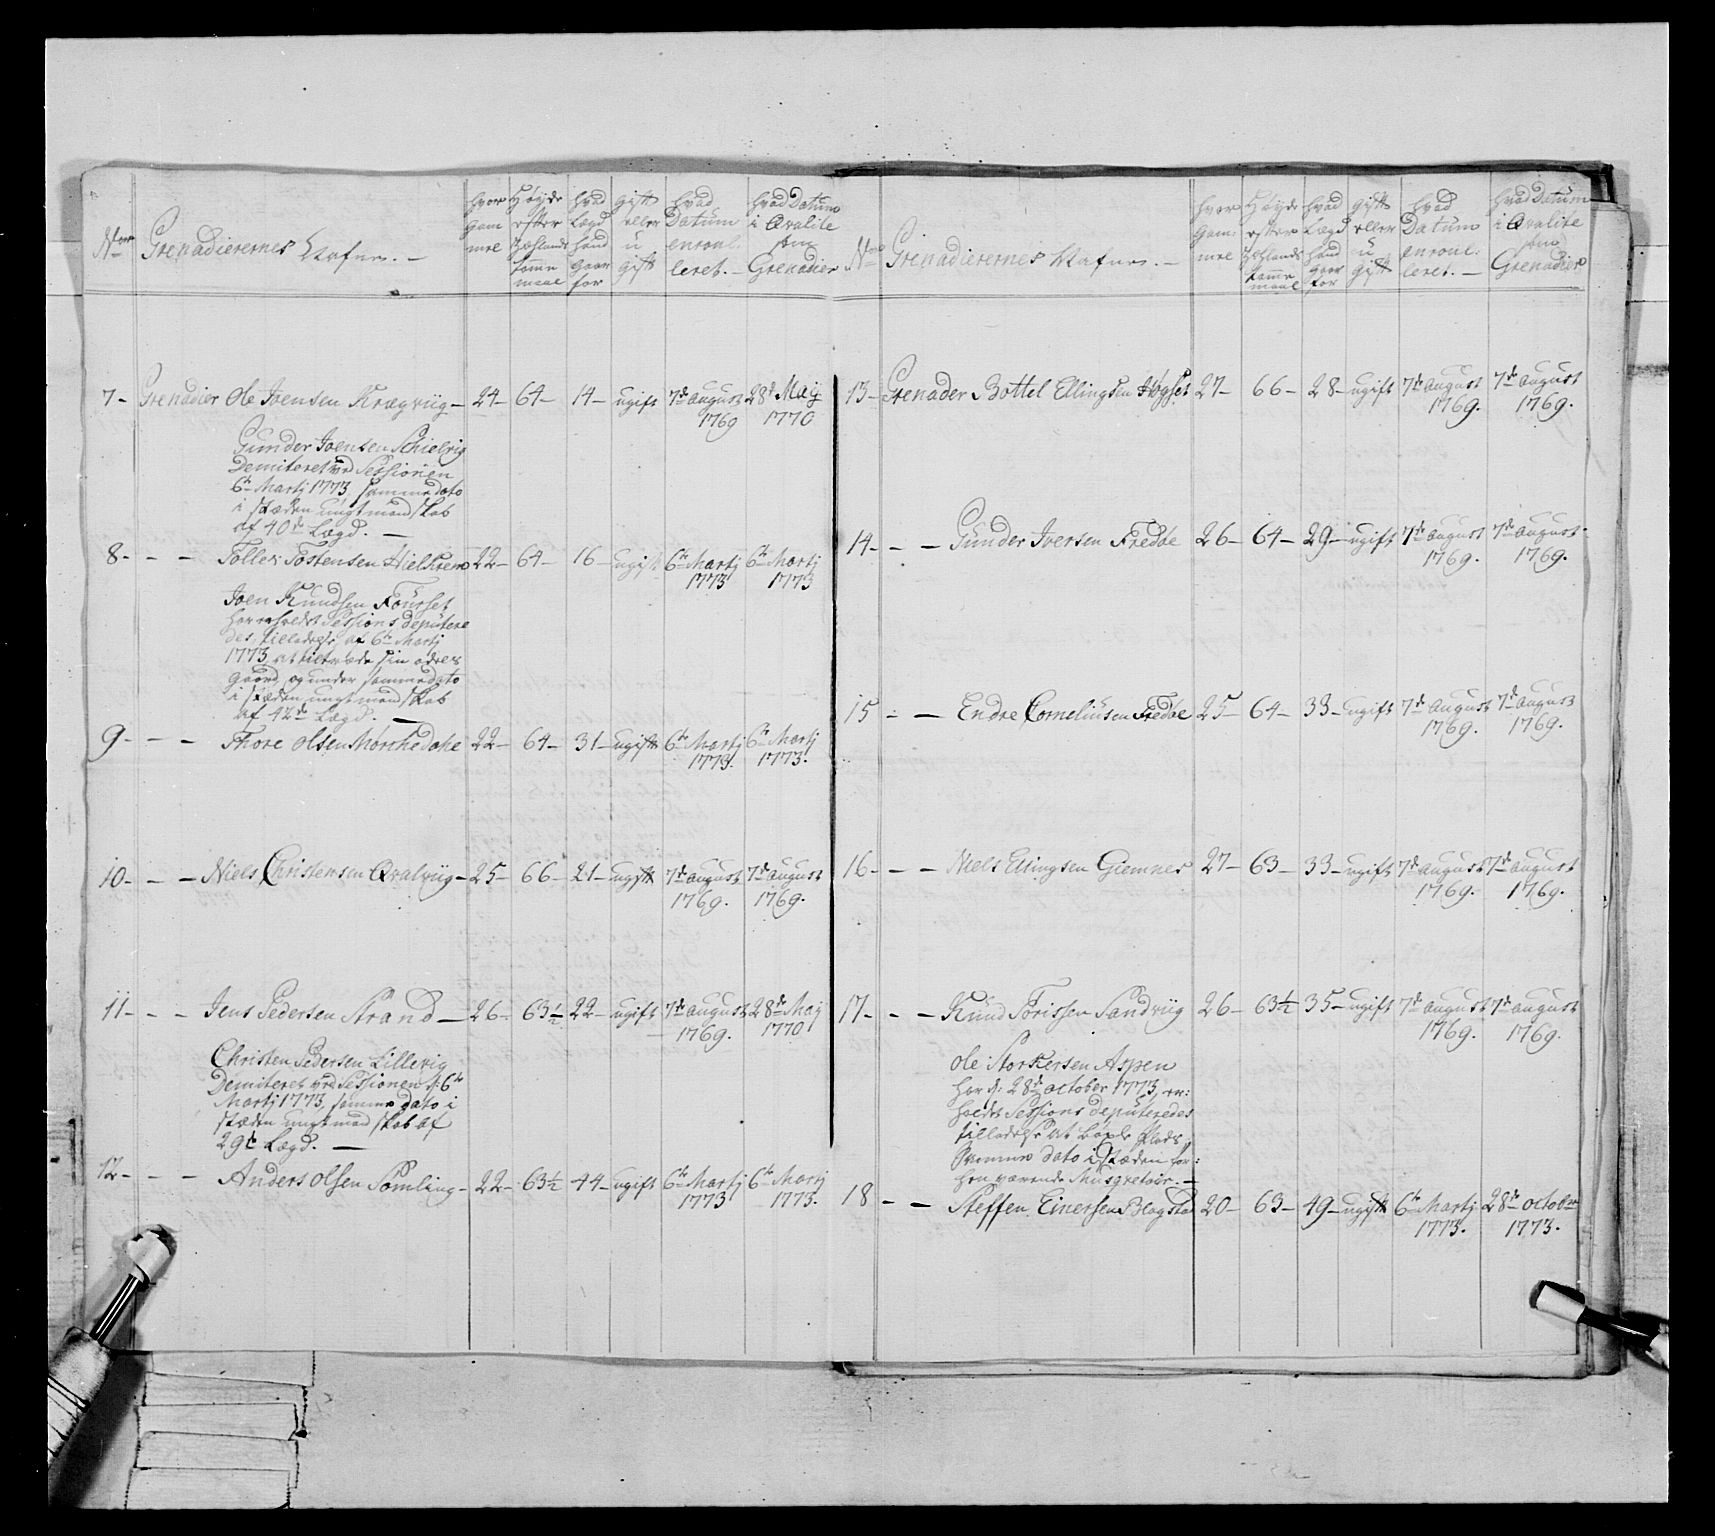 Nor Grenadierernes Nafne. —
hvor gam mel
Høyde efter Siælands tomme maal
hvad Lægd hand gaar for
gift eller u gift
hvad Datum enroul: leret. —
hvad Datum i Qvalite som Grenadier
7 - Grenadier Ole Joensen Krægviig — 24 — 64 — 14 — ugift 7de august 1769 28de Maij 1770
Gunder Joensen Schielvig
Demiteret ved Sessionen
6te Martj 1773, samme dato
i stæden ungt mandskab
af 40de Lægd. —
8 - - - Tollev Tostensen Hielkrem 22 — 64 — 16 — ugift 6te Martj 1773 6te Martj 1773
Joen Knudsen Fourset
har erholdet Sessions deputere
des tilladelse af 6te Martj
1773 at tiltræde sin odels
gaard, og under samme dato
i stæden ungt mandskab
af 42de Lægd. —
9 - - - Thore Olsen Mørchedahe 22 — 64 — 31 — ugift 6te Martj 1773. 6te Martj 1773.
10 - - - Niels Christensen Qvalviig — 25 — 66 — 21 — ugift 7de august 1769. 7de august 1769.
11 - - - Jens Pedersen Strand — 26 — 63½ 22 — ugift 7de august 1769. 28de Maj 1770
Christen Pedersen Lillevig
Demiteret ved Sessionen d: 6te
Martj 1773, samme dato i
stæden ungt mandskab af
29de Lægd. —
12 - - - Anders Olsen Sømling — 22 — 63½ 44 — ugift 6te Martj 1773 6te Martj 1773.
No Grenadierernes Nafne. —
hvor gam: mel
Høyde efter Siælands tomme maal
hvad Lægd hand gaar for
gift eller u gift
hvad Datum enroul: leret. —
hvad Datum i Qvalite som Grenadier
13 - Grenader Bottel Ellingsen Høgset 27 — 66 — 28 — ugift 7de august 1769. 7de august 1769.
14 - - - Gunder Iversen Fredøe 26 — 64 — 29 — ugift 7de august 1769. 7de august 1769.
15 - - Endre Corneliusen Fredøe 25 — 64 — 33 — ugift 7de august 1769. 7de august 1769.
16 - - - Niels Ellingsen Giemnes 27 — 63 — 33 — ugift 7de august 1769. 7de august 1769.
17 - - - Knud Torissen Sandviig 26 — 63½ 35 — ugift 7de august 1769. 7de august 1769.
Ole Storkersen Aspen
har d: 28de october 1773, er:
holdet Sessions deputeredes
tilladelse at bøxle Plads
Samme dato i Stæden for:
hen værende Musqveteer. —
18 - - Steffen Einersen Blogstad 20 — 63 — 49 — ugift 6te Martj 1773. 28de october 1773.